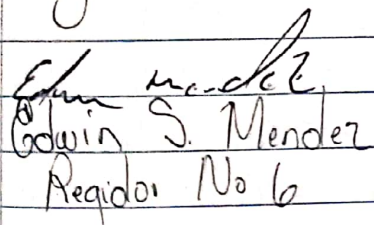 Edwin Mendez
Edwin S. Mendez
Regidor No 6